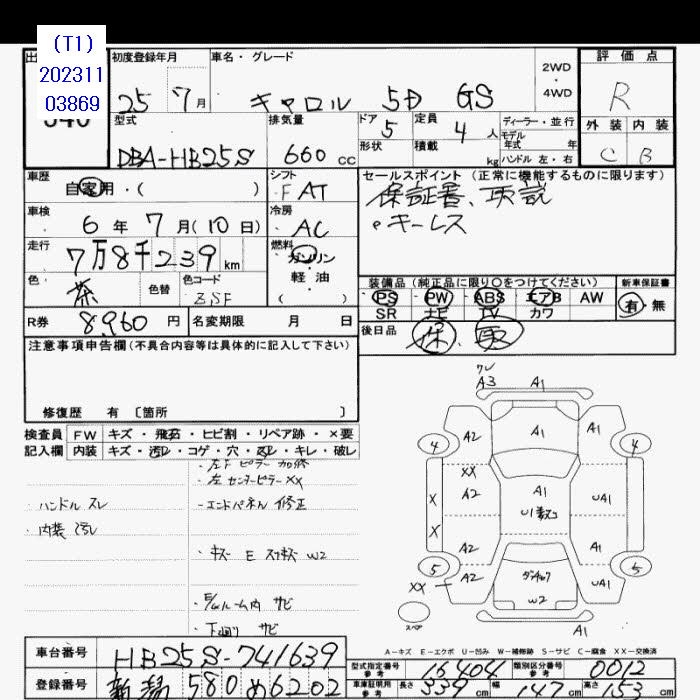 (T1)
202311
03869
出
初度登録年月
車名・グレード
2WD
・
4WD
評価点
25 7月
キャロル 5D GS
R
型式
排気量
ドア
定員
ディーラー・並行
外装 内装
DBA-HB25S
660cc
5
4人
モデル年式 年
形状
積載
kg
ハンドル 左・右
C B
車歴
自家用・( )
シフト
FAT
セールスポイント(正常に機能するものに限ります)
保証書、取説
キーレス
車検
6年7月(10日)
冷房
AC
走行
7万8千239km
燃料
ガソリン
・
軽油
( )
色
茶
色替
色コード
ZSF
装備品(純正品に限り〇をつけてください)
新車保証書
PS PW ABS エアB AW
SR ナビ TV カワ
有・無
R券
8,960円
名変期限 月 日
後日品
保、取
注意事項申告欄(不具合内容等は具体的に記入して下さい)
修復歴 有〔箇所 〕
検査員
記入欄
FW キズ・飛石・ヒビ割・リペア跡・×要
内装 キズ・汚レ・コゲ・穴・スレ・キレ・破レ
・左F ピラー 加修
・左 センターピラー XX
・ハンドル スレ
・エンドパネル 修正
・内装 汚レ
・キズ E スリキズ W2
ルーム内 サビ
下廻り サビ
ワレ
A3 A1
A2 A1 A1
4 4
XX
A2 A1 UA1
X
U1数コ
X
A2 A1
5 5
XX A2 UA1
W2
スペア
A1
A-キズ E-エクボ U-凹み W-補修跡 S-サビ C-腐食 XX-交換済
車台番号
HB25S-741639
登録番号
新潟 580 め 6202
型式指定番号
参考
16404
類別区分番号
参考
0012
車庫証明用
参考
長さ 339cm
幅 147cm
高さ 153cm